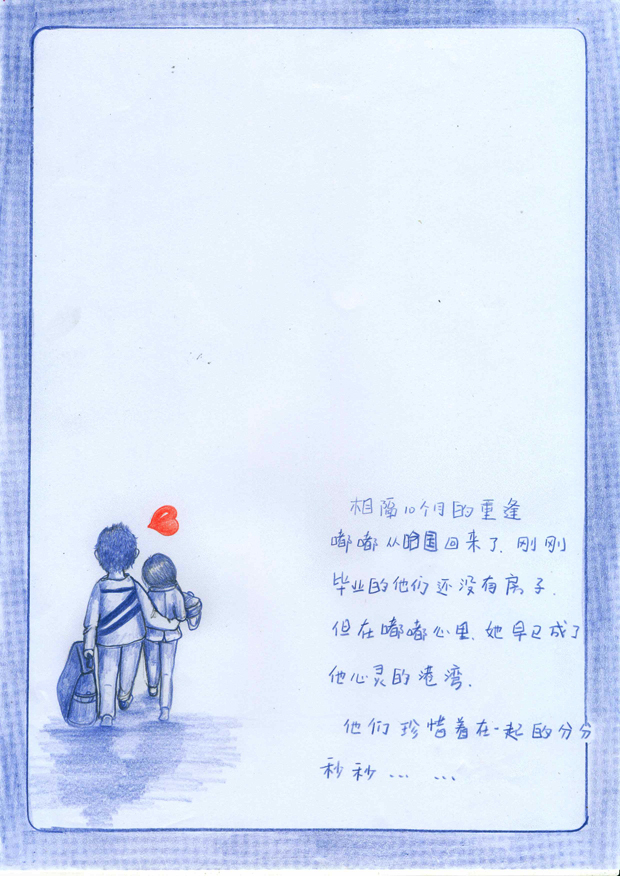 相隔10个月的重逢
嘟嘟从哈国回来了.刚刚
毕业的他们还没有房子.
但在嘟嘟心里.她早已成了
他心灵的港湾.
他们珍惜着在一起的分分
秒秒... ...